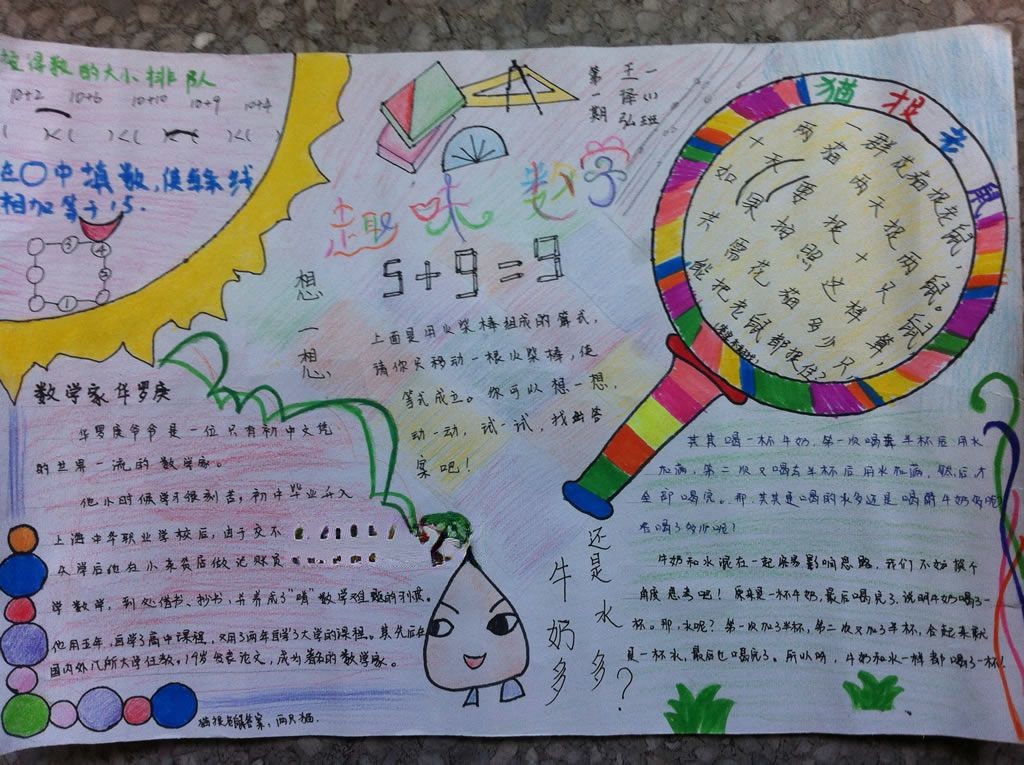 按得数的大小排队
10+2 10+6 10+10 10+9 10+4
( )<( )<( )<( )<( )
在○中填数,使每条线
相加等于15.
③ ④
⑤
①
趣味数学
第一期
王译弘
一(1)班
5+9=9
想一想
上面是用火柴棒组成的算式,
请你只移动一根火柴棒,使
等式成立。你可以想一想,
动一动,试一试,找出答
案吧!
猫捉老鼠
一群花猫捉老鼠,
两猫两天捉两鼠。
十天要捉十只鼠
如果按照这样算,
共需花猫多少只
能把老鼠都捉住?
数学家华罗庚
华罗庚爷爷是一位只有初中文凭
的世界一流的数学家。
他小时候学习很刻苦,初中毕业升入
上海中华职业学校后,由于交不
失学后他在小杂货店做记账员
学数学,到处借书、抄书,并养成了“啃”数学难题的习惯。
他用五年,自学了高中课程,又用了两年自学了大学的课程。其先后在
国内外八所大学任教。19岁发表论文,成为著名的数学家。
猫捉老鼠答案:两只猫.
牛奶多
还是水多?
其其喝一杯牛奶,第一次喝去半杯后用水
加满,第二次又喝去半杯后用水加满,然后才
全部喝完。那,其其是喝的水多还是喝的牛奶多呢
各喝了多少呢?
牛奶和水混在一起容易影响思路,我们不妨换个
角度思考吧!原来是一杯牛奶,最后喝完了,说明牛奶喝了一
杯。那,水呢?第一次加了半杯,第二次又加了半杯,合起来就
是一杯水,最后也喝完了。所以呀,牛奶和水一样都喝了一杯!